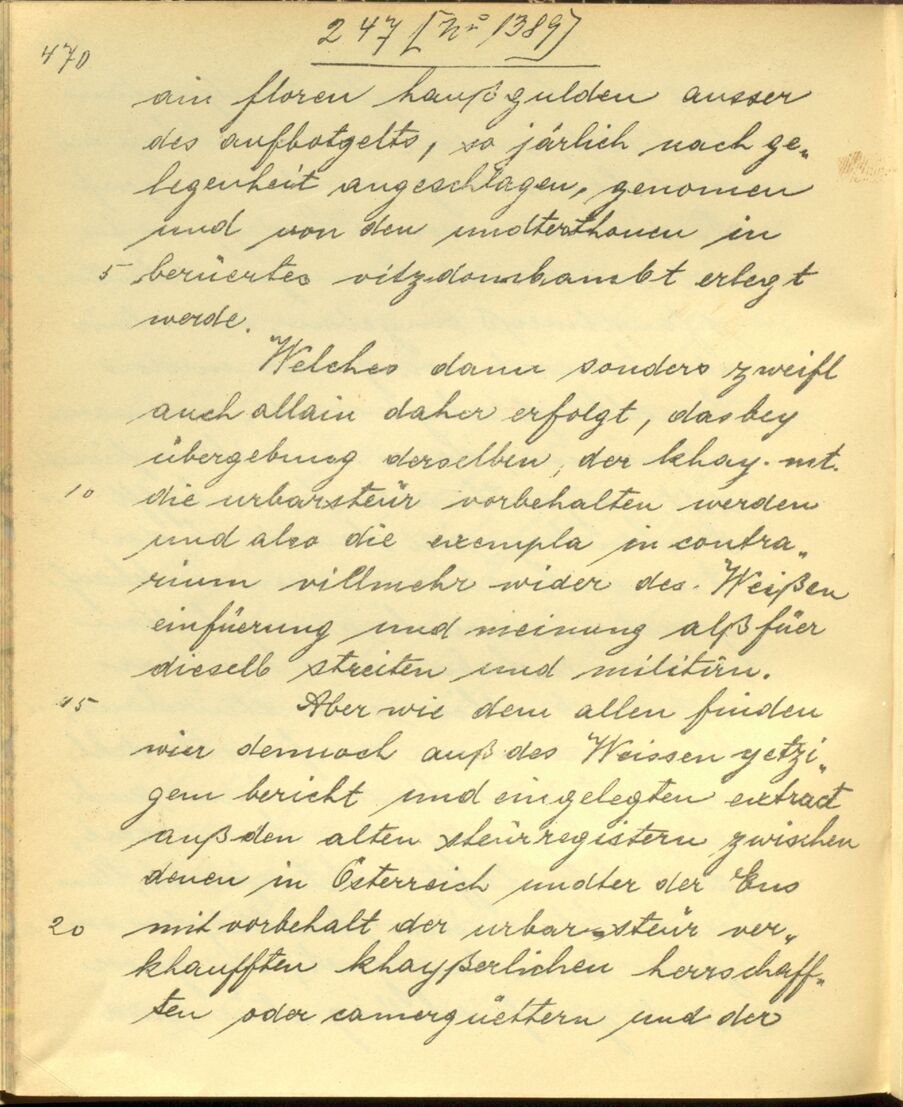 470
247 [No 1389]
ain floren hauß gulden ausser
des aufbotgelts, so järlich nach ge„
legenheit angeschlagen, genomen
und von den undterthonen in
5 berüertes vitzdombambt erlegt
werde.
Welches dann sonders zweifl
auch allain daher erfolgt, das bey
übergebung derselben, der khay. mt.
10 die urbarsteür vorbehalten werden
und also die exempla in contra„
rium villmehr wider des Weißen
einfüerung und meinung alß füer
dieselb streiten und militirn.
15 Aber wie dem allen finden
wier dennoch auß des Weissen yetzi„
gem bericht und eingelegten extract
auß den alten steürregistern zwischen
denen in Österreich undter der Ens
20 mit vorbehalt der urbar-steür ver„
khaufften khayßerlichen herrschaff„
ten oder camergüettern und der